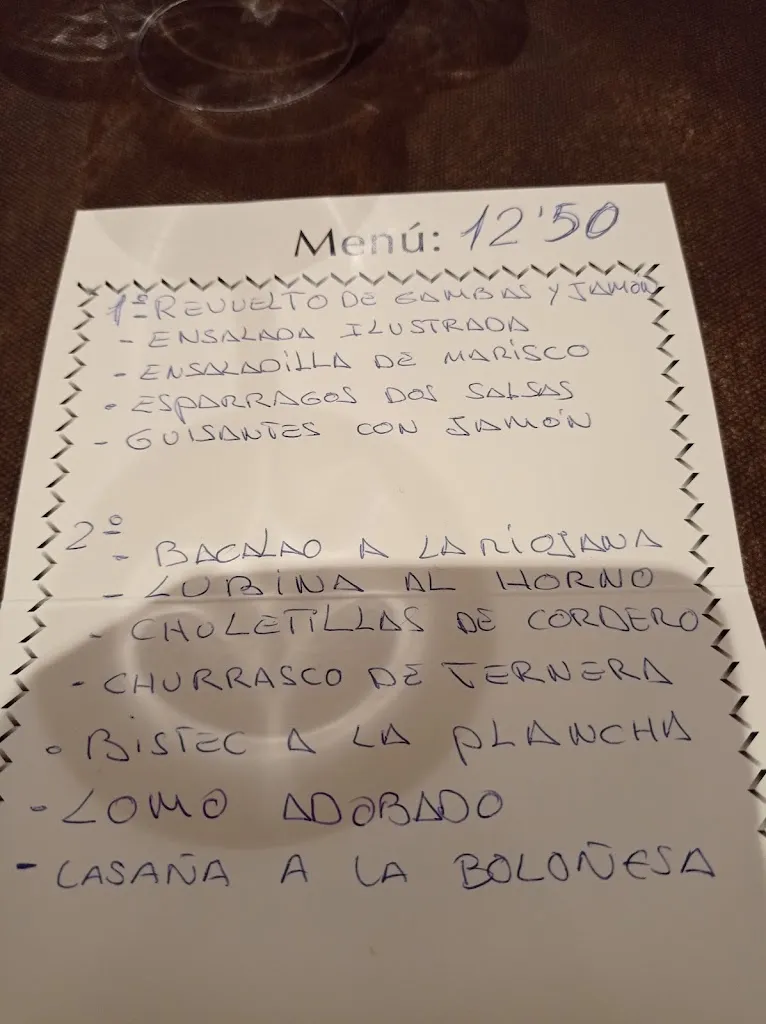 Menú: 12'50
1º REVUELTO DE GAMBAS Y JAMÓN
- ENSALADA ILUSTRADA
- ENSALADILLA DE MARISCO
- ESPARRAGOS DOS SALSAS
- GUISANTES CON JAMÓN
2º
- BACALAO A LA RIOJANA
- LUBINA AL HORNO
- CHULETILLAS DE CORDERO
- CHURRASCO DE TERNERA
- BISTEC A LA PLANCHA
- LOMO ADOBADO
- LASAÑA A LA BOLOÑESA